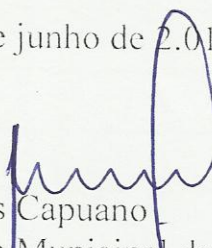 e junho de 2.01
s Capuano
Municipal